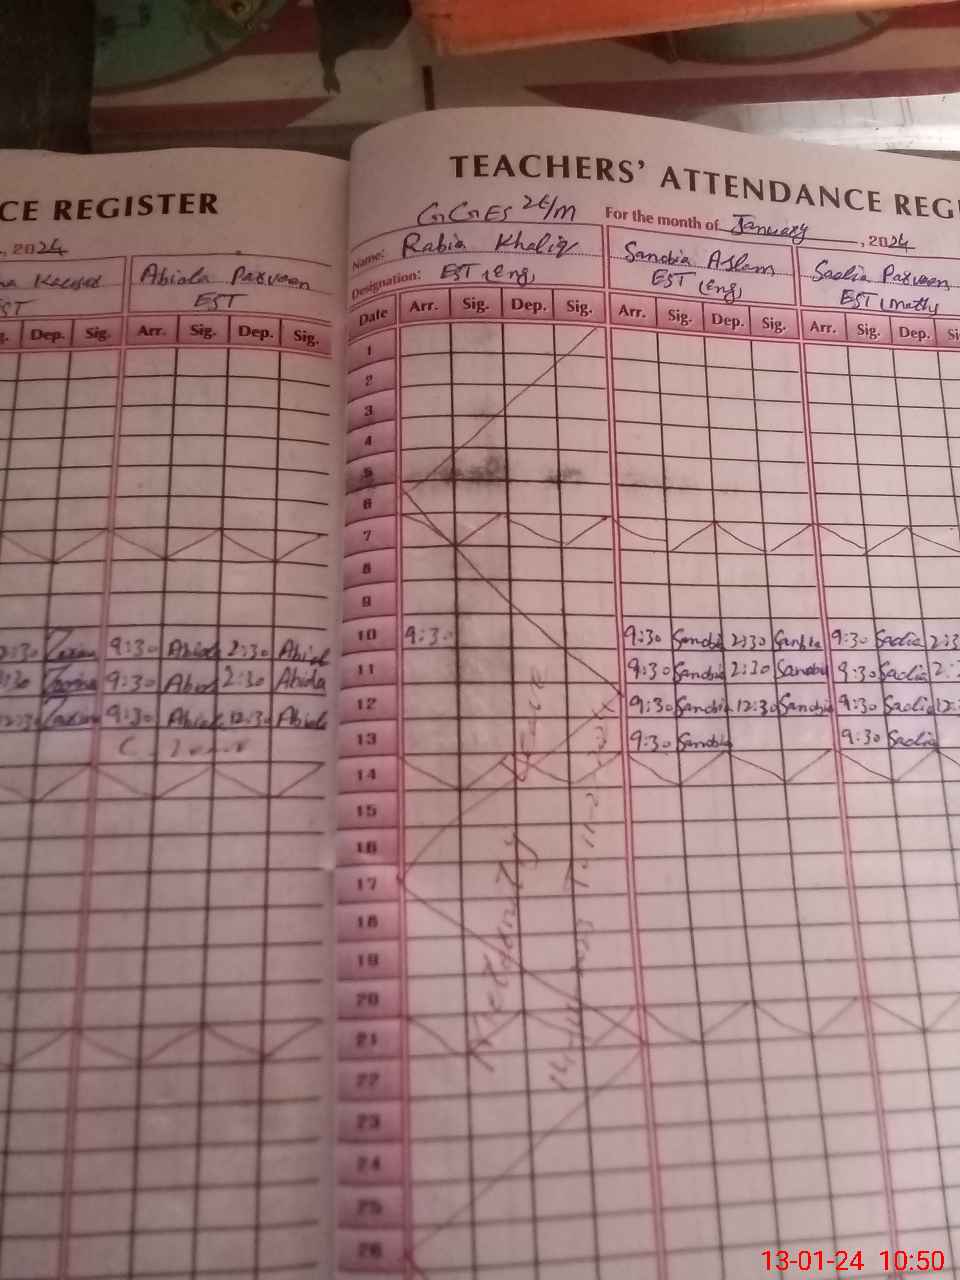 CE REGISTER
, 2024
Abida Parveen
EST
EST
Dep. Sig. Arr. Sig. Dep. Sig.
9:30 2:30 Abida
9:30 Abida 2:30 Abida
12:30 9:30 Abida 12:30 Abida
TEACHERS' ATTENDANCE REGI
GGES 26/M For the month of January, 2024
Name: Rabia Khaliq Sanobia Aslam Sadia Parveen
Designation: EST (Eng) EST (Eng) EST (Math)
Date Arr. Sig. Dep. Sig. Arr. Sig. Dep. Sig. Arr. Sig. Dep. Si
1
2
3
4
5
6
7
8
9
10 9:30 9:30 Sanobia 2:30 Sanobia 9:30 Sadia 2:3
11 9:30 Sanobia 2:30 Sanobia 9:30 Sadia 2:
12 9:30 Sanobia 12:30 Sanobia 9:30 Sadia 12:
13 9:30 Sanobia 9:30 Sadia
14
15
16
17
18
19
20
21
22
23
24
25
26
Meternity Leave
13-01-24 10:50